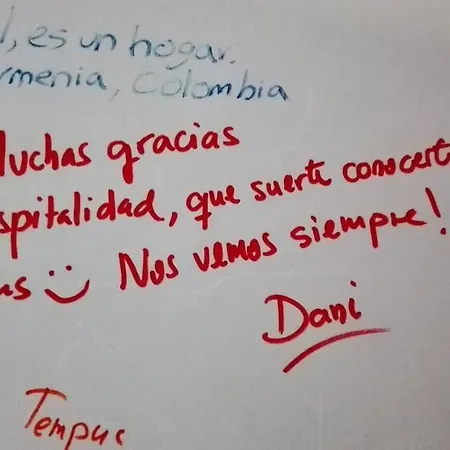 l, es un hogar.
rmenia, Colombia
Muchas gracias
spitalidad, que suerte conocert
as :) Nos vemos siempre!
Dani
Tempus